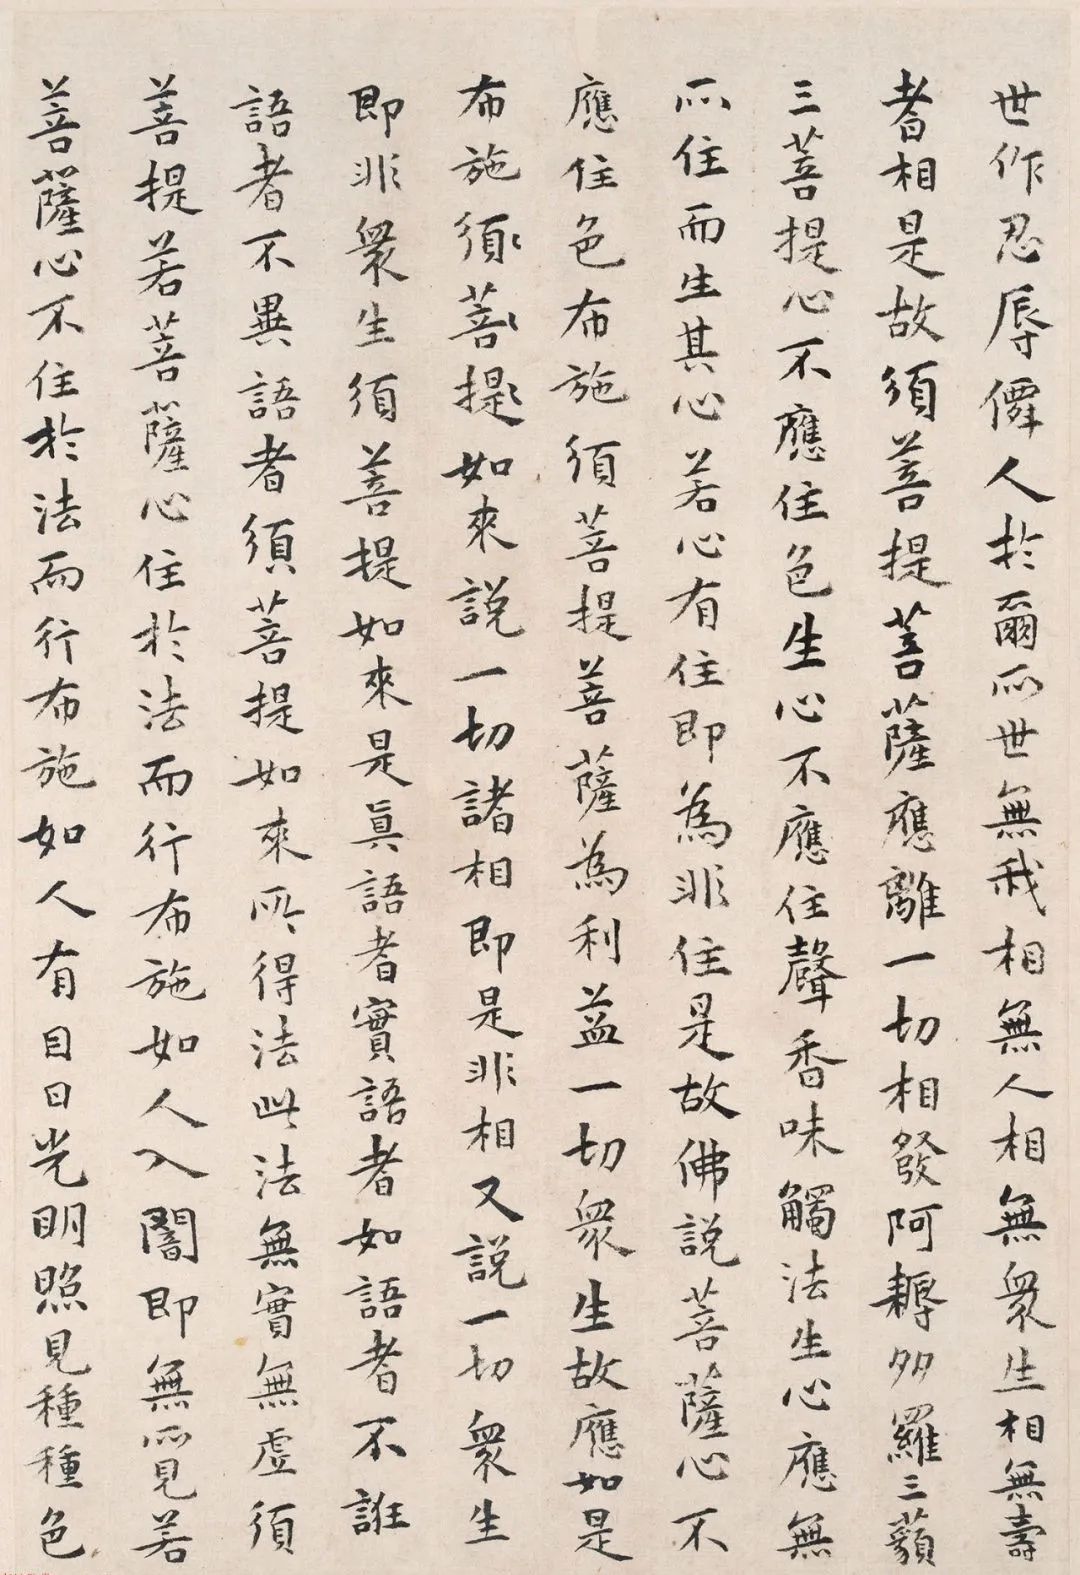 世作忍辱僊人於爾所世無我相無人相無衆生相無壽
者相是故須菩提菩薩應離一切相發阿耨多羅三藐
三菩提心不應住色生心不應住聲香味觸法生心應無
所住而生其心若心有住即為非住是故佛說菩薩心不
應住色布施須菩提菩薩為利益一切衆生故應如是
布施須菩提如來說一切諸相即是非相又說一切衆生
即非衆生須菩提如來是真語者實語者如語者不誑
語者不異語者須菩提如來所得法此法無實無虛須
菩提若菩薩心住於法而行布施如人入闇即無所見若
菩薩心不住於法而行布施如人有目日光明照見種種色